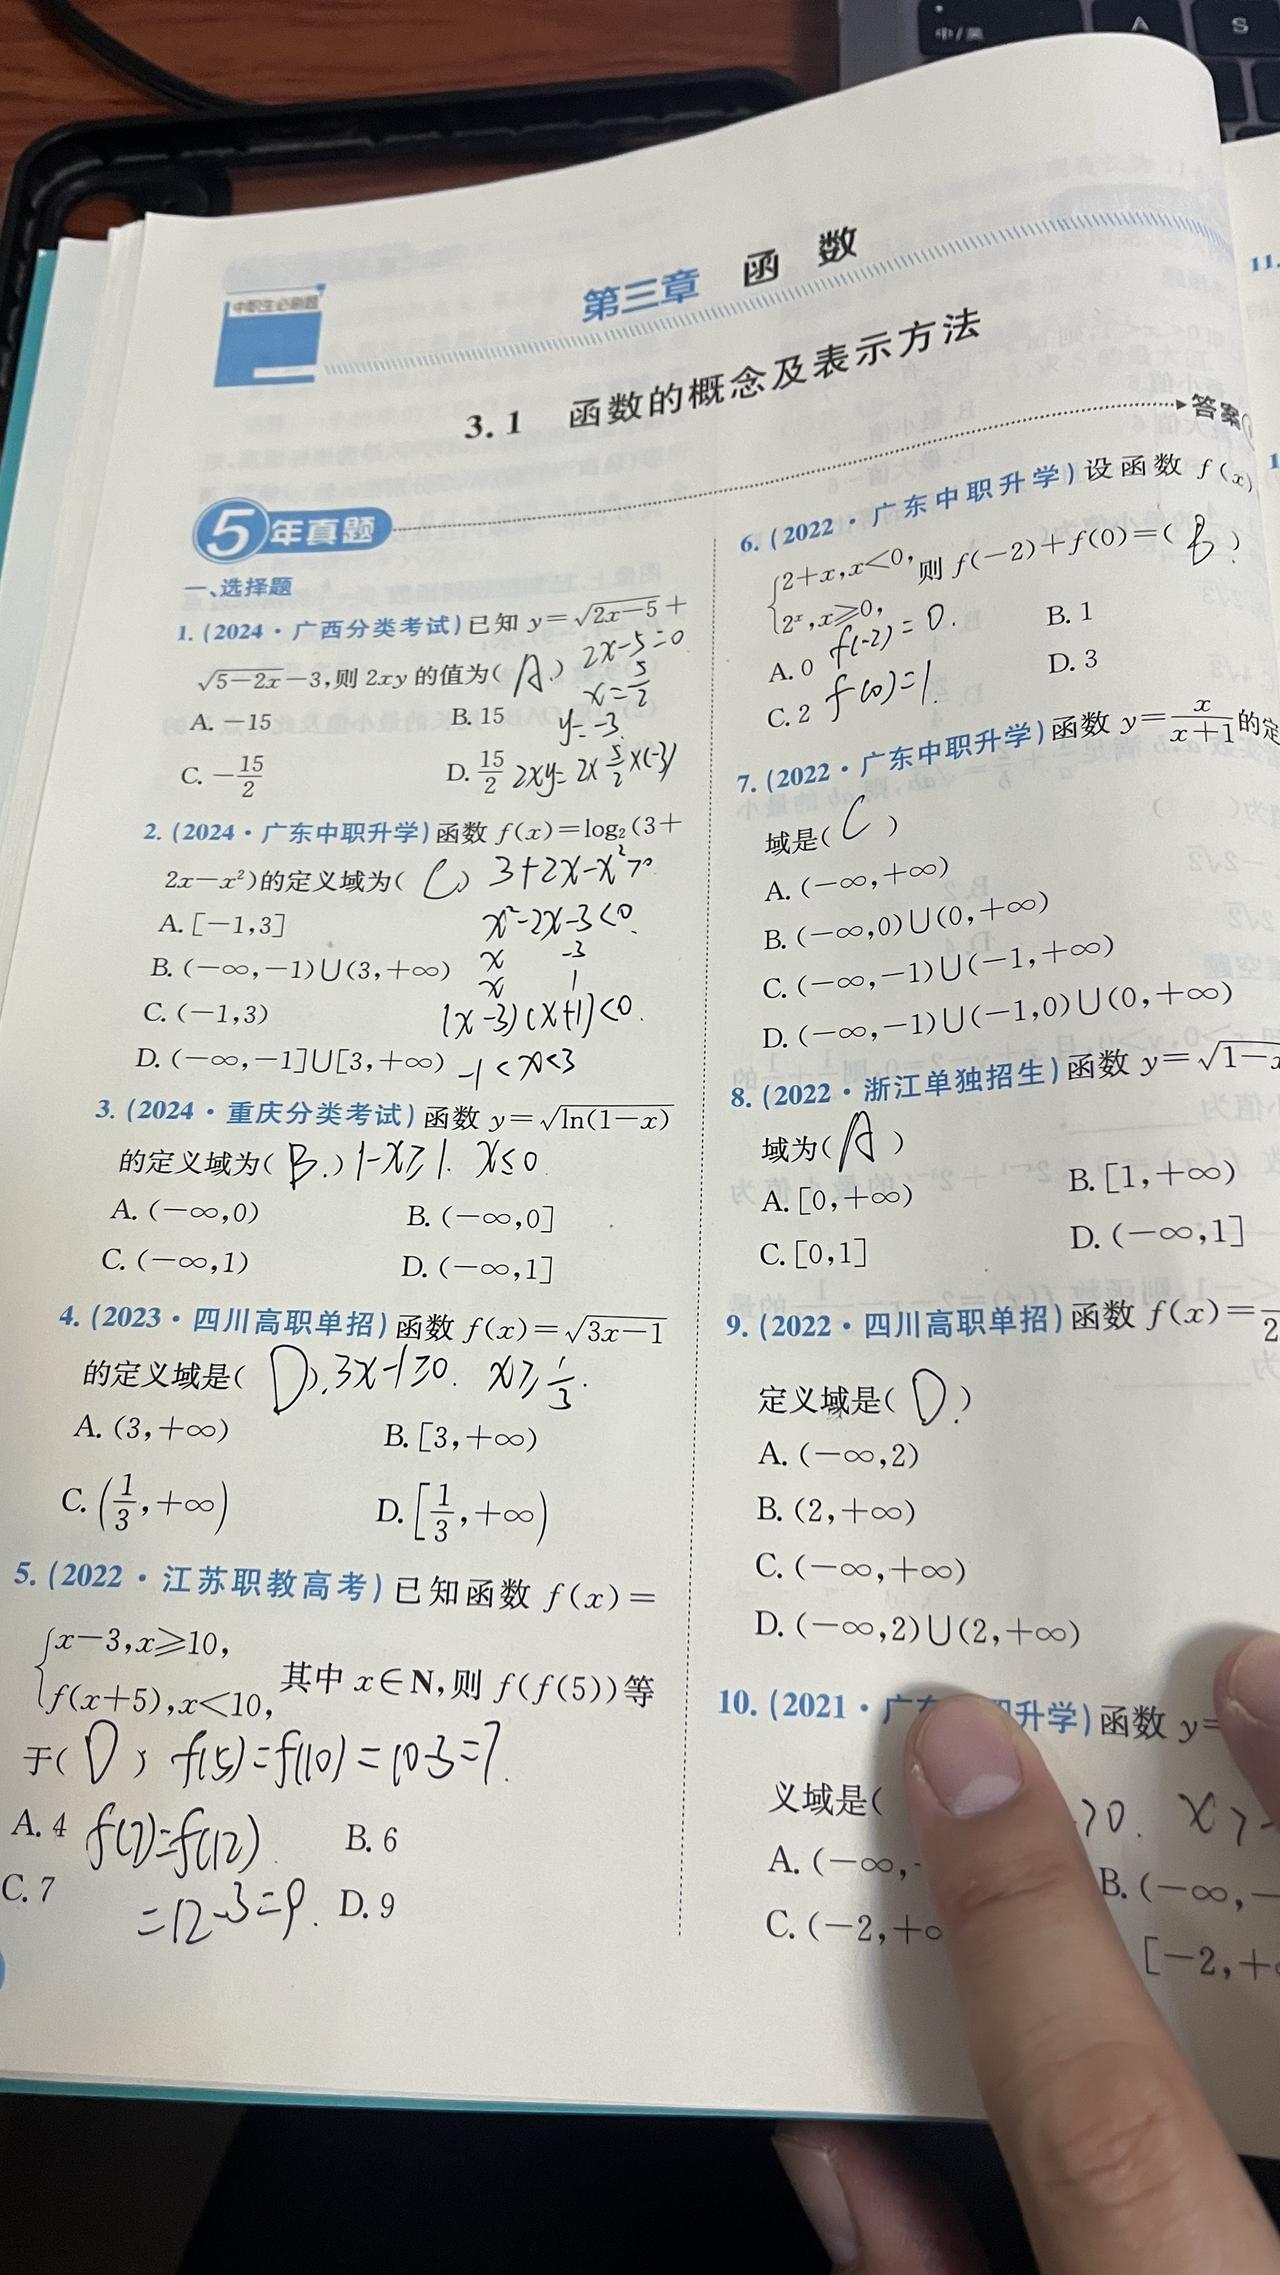 中/英
A
S
中职生必刷题
第三章 函 数
3.1 函数的概念及表示方法
答案
5年真题
一、选择题
1. (2024·广西分类考试)已知 y=√(2x-5)+
√(5-2x)-3,则 2xy 的值为( A. ) 2x-5=0
x=5/2
A. -15 B. 15 y=-3.
C. -15/2 D. 15/2 2xy=2×5/2×(-3)
2. (2024·广东中职升学)函数 f(x)=log₂(3+
2x-x²)的定义域为( C ) 3+2x-x²>0
A. [-1,3] x²-2x-3<0.
B. (-∞,-1)∪(3,+∞) x -3
x 1
C. (-1,3) (x-3)(x+1)<0.
D. (-∞,-1]∪[3,+∞) -1<x<3
3. (2024·重庆分类考试)函数 y=√(ln(1-x))
的定义域为( B. ) 1-x≥1. x≤0.
A. (-∞,0) B. (-∞,0]
C. (-∞,1) D. (-∞,1]
4. (2023·四川高职单招)函数 f(x)=√(3x-1)
的定义域是( D ). 3x-1≥0. x≥1/3.
A. (3,+∞) B. [3,+∞)
C. (1/3,+∞) D. [1/3,+∞)
5. (2022·江苏职教高考)已知函数 f(x)=
{x-3,x≥10,
f(x+5),x<10, 其中 x∈N,则 f(f(5))等
于( D ) f(5)=f(10)=10-3=7.
A. 4 f(7)=f(12) B. 6
C. 7 =12-3=9. D. 9
6. (2022·广东中职升学)设函数 f(x)
{2+x,x<0,
2ˣ,x≥0, 则 f(-2)+f(0)=( B )
f(-2)=0.
A. 0 B. 1
C. 2 f(0)=1. D. 3
7. (2022·广东中职升学)函数 y=x/(x+1)的定
域是( C )
A. (-∞,+∞)
B. (-∞,0)∪(0,+∞)
C. (-∞,-1)∪(-1,+∞)
D. (-∞,-1)∪(-1,0)∪(0,+∞)
8. (2022·浙江单独招生)函数 y=√1-x
域为( A )
A. [0,+∞) B. [1,+∞)
C. [0,1] D. (-∞,1]
9. (2022·四川高职单招)函数 f(x)=
2
定义域是( D. )
A. (-∞,2)
B. (2,+∞)
C. (-∞,+∞)
D. (-∞,2)∪(2,+∞)
10. (2021·广东 升学)函数 y=
义域是( >0. x>
A. (-∞,- B. (-∞,-
C. (-2,+∞ [-2,+∞
11.